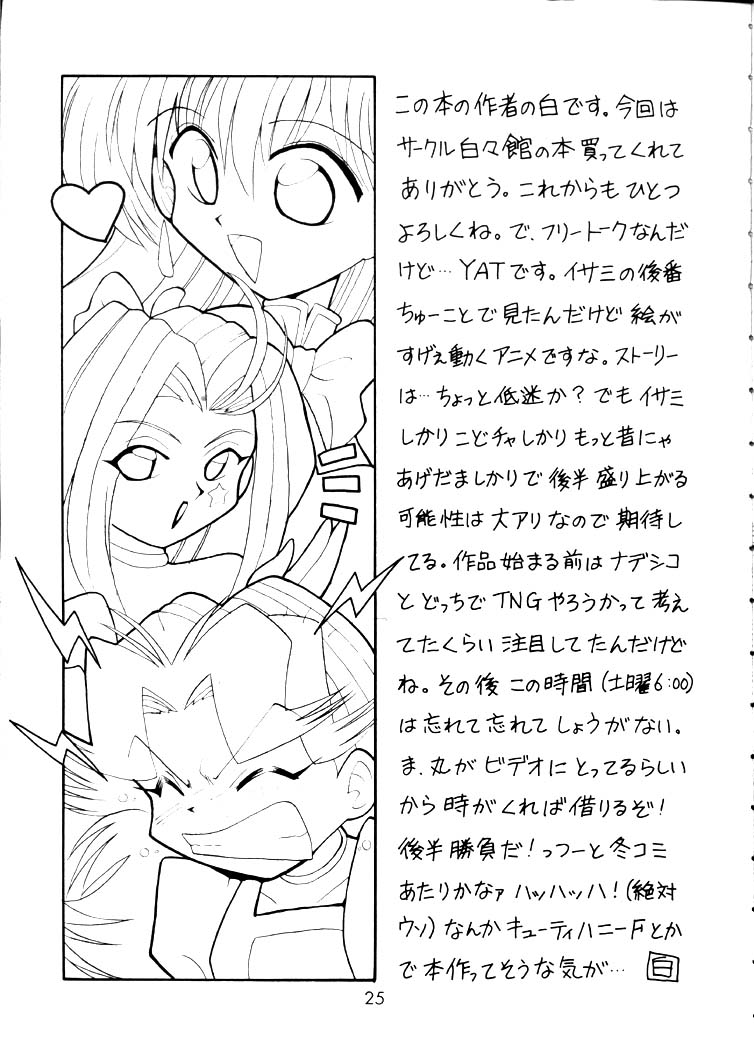 この本の作者の白です。今回は
サークル白々館の本買ってくれて
ありがとう。これからもひとつ
よろしくね。で、フリートークなんだ
けど…YATです。イサミの後番
ちゅーことで見たんだけど絵が
すげぇ動くアニメですな。ストーリー
は…ちょっと低迷か？でもイサミ
しかりこどチャしかりもっと昔にゃ
あげだましかりで後半盛り上がる
可能性は大アリなので期待し
てる。作品始まる前はナデシコ
とどっちでTNGやろうかって考え
てたくらい注目してたんだけど
ね。その後この時間(土曜6:00)
は忘れて忘れてしょうがない。
ま、丸がビデオにとってるらしい
から時がくれば借りるぞ！
後半勝負だ！っつーと冬コミ
あたりかなァハッハッハ！(絶対
ウソ)なんかキューティハニーFとか
で本作ってそうな気が… 白
25